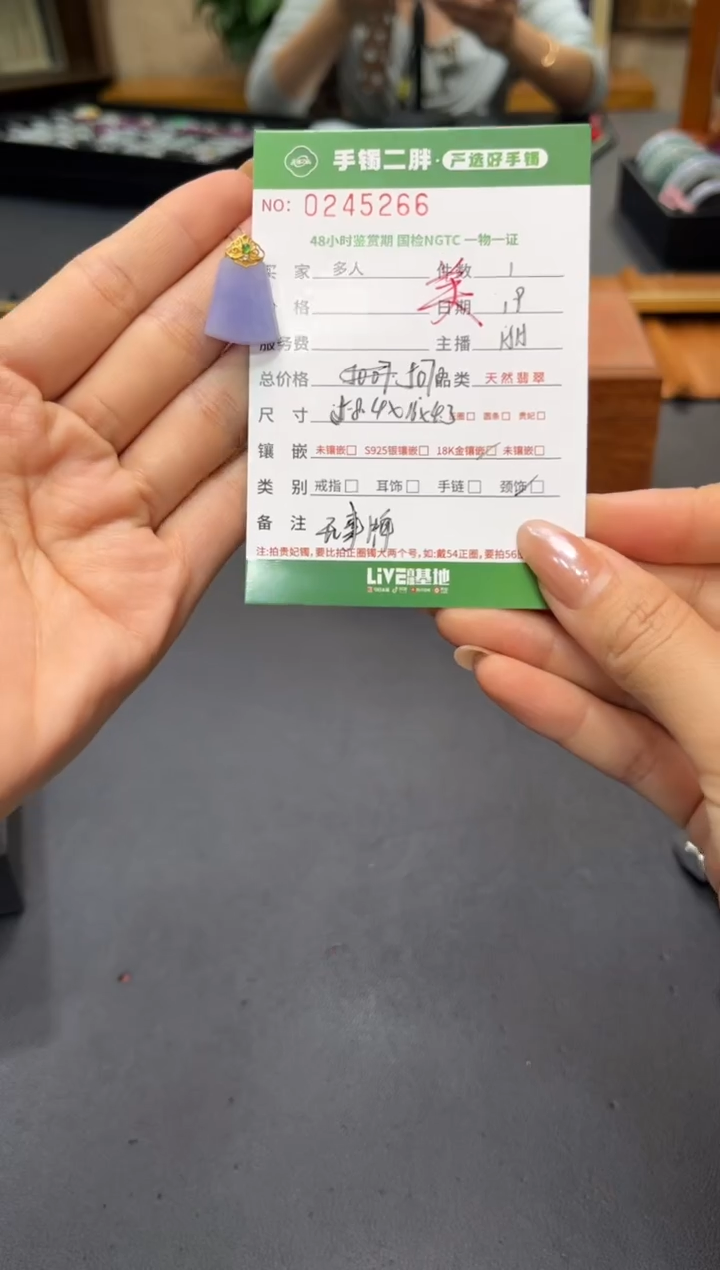 手镯二胖·严选好手镯
NO: 0245266
48小时鉴赏期 国检NGTC 一物一证
买 家 多人 件数 1
格 日期 19
服务费 主播
总价格 品类 天然翡翠
尺 寸 圆条□ 贵妃□
镶 嵌 未镶嵌□ S925银镶嵌□ 18K金镶嵌□ 未镶嵌□
类 别 戒指□ 耳饰□ 手链□ 颈饰□
备 注 无事牌
注:拍贵妃镯,要比拍正圈镯大两个号,如:戴54正圈,要拍56
LiVE 基地